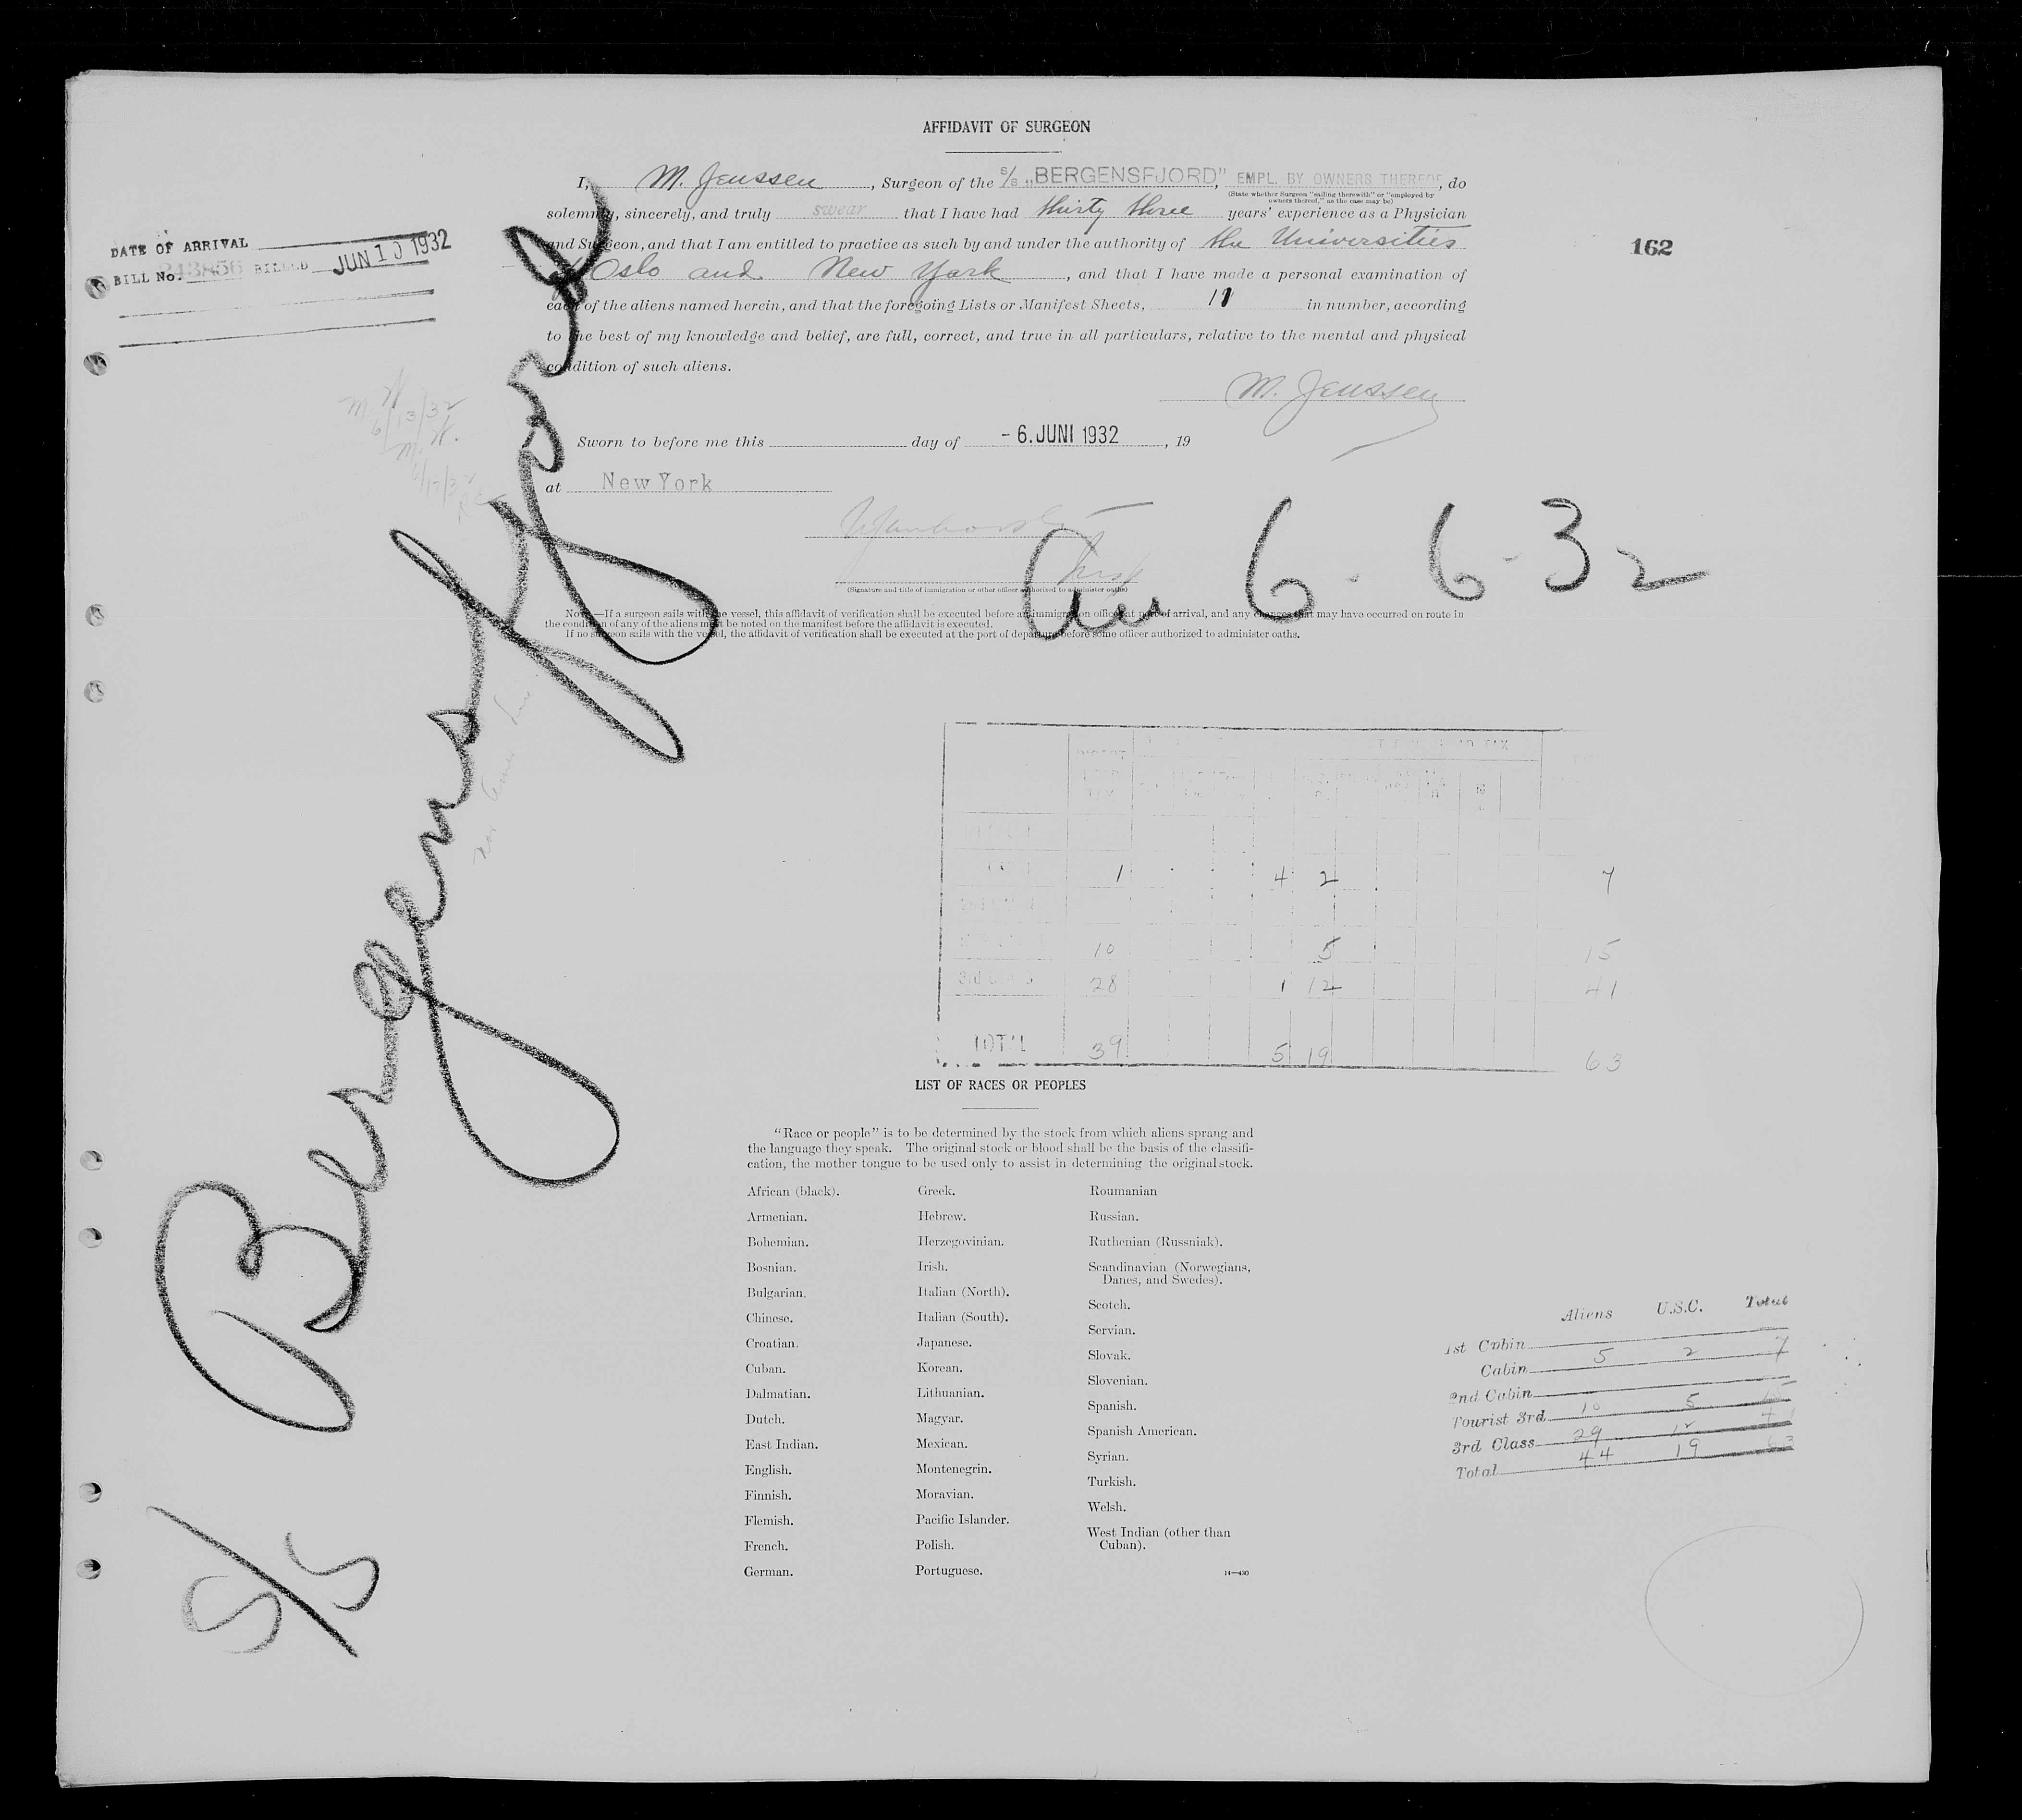 AFFIDAVIT OF SURGEON
I, M. Jenssen, Surgeon of the S/S „BERGENSFJORD", EMPL. BY OWNERS THEREOF, do
(State whether Surgeon "sailing therewith" or "employed by
owners thereof," as the case may be)
solemnly, sincerely, and truly swear that I have had thirty three years' experience as a Physician
and Surgeon, and that I am entitled to practice as such by and under the authority of the Universities
of Oslo and New York, and that I have made a personal examination of
each of the aliens named herein, and that the foregoing Lists or Manifest Sheets, 11 in number, according
to the best of my knowledge and belief, are full, correct, and true in all particulars, relative to the mental and physical
condition of such aliens.
M. Jenssen
Sworn to before me this day of - 6. JUNI 1932, 19
at New York
(Signature and title of immigration or other officer authorized to administer oaths)
NOTE.—If a surgeon sails with the vessel, this affidavit of verification shall be executed before an immigration officer at port of arrival, and any changes that may have occurred on route in
the condition of any of the aliens must be noted on the manifest before the affidavit is executed.
If no surgeon sails with the vessel, the affidavit of verification shall be executed at the port of departure before some officer authorized to administer oaths.
162
DATE OF ARRIVAL
BILL No. 243856 BILLED JUN 10 1932
6/13/32
6/17/32
S/S Bergensfjord
6-6-32
1 4 2 7
10 5 15
3rd CLASS 28 1 12 41
TOTAL 39 5 19 63
LIST OF RACES OR PEOPLES
"Race or people" is to be determined by the stock from which aliens sprang and
the language they speak. The original stock or blood shall be the basis of the classifi-
cation, the mother tongue to be used only to assist in determining the original stock.
African (black).
Armenian.
Bohemian.
Bosnian.
Bulgarian.
Chinese.
Croatian.
Cuban.
Dalmatian.
Dutch.
East Indian.
English.
Finnish.
Flemish.
French.
German.
Greek.
Hebrew.
Herzegovinian.
Irish.
Italian (North).
Italian (South).
Japanese.
Korean.
Lithuanian.
Magyar.
Mexican.
Montenegrin.
Moravian.
Pacific Islander.
Polish.
Portuguese.
Roumanian
Russian.
Ruthenian (Russniak).
Scandinavian (Norwegians,
Danes, and Swedes).
Scotch.
Servian.
Slovak.
Slovenian.
Spanish.
Spanish American.
Syrian.
Turkish.
Welsh.
West Indian (other than
Cuban).
14—430
Aliens U.S.C. Total
1st Cabin
Cabin 5 2 7
2nd Cabin
Tourist 3rd 10 5 15
3rd Class 29 12 41
Total 44 19 63